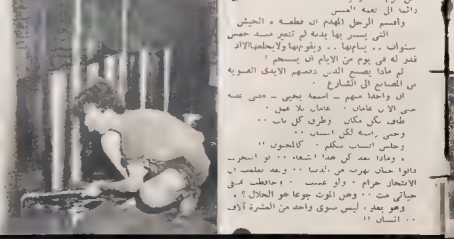 دائما الى نغمة العسر
وأقسم الرجل المهدم ان قطعة « الخيش
التى يستر بها بدنه لم تتغير منذ خمس
سنوات .. ينام بها .. ويقوم بها ولا يخلعها الا اذا
قدر له فى يوم من الايام ان يستحم !
ثم ماذا يصنع الذين دفعتهم الايدى القوية
من المصانع الى الشارع
ان واحدا منهم ــ اسمه يحيى ــ مضى عليه
حتى الآن عامان . عامان بلا عمل .
طاف بكل مكان وطرق كل باب ..
وحنى راسه لكل انسان ..
وجلس انسان يتكلم . كالمجنون !!
« وماذا بعد كل هذا الشقاء .. لو انتحرت
قالوا جبان يهرب من الدنيا .. وبعد تعلمت ان
الانتحار حرام . ولو عشت .. وحافظت على
حياتى مت .. وهل الموت جوعا هو الحلال ؟ .
وهو بعد ، ليس سوى واحد من العشرة آلاف
.. انسان !!